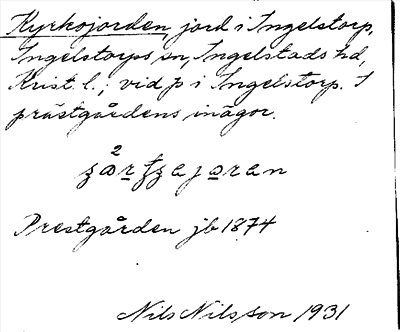 Kyrkojorden, jord i Ingelstorp,
Ingelstorps sn, Ingelstads hd,
Krist. l.; vid þ i Ingelstorp. I
prästgårdens inägor.
Prestgården jb 1874
Nils Nilsson 1931